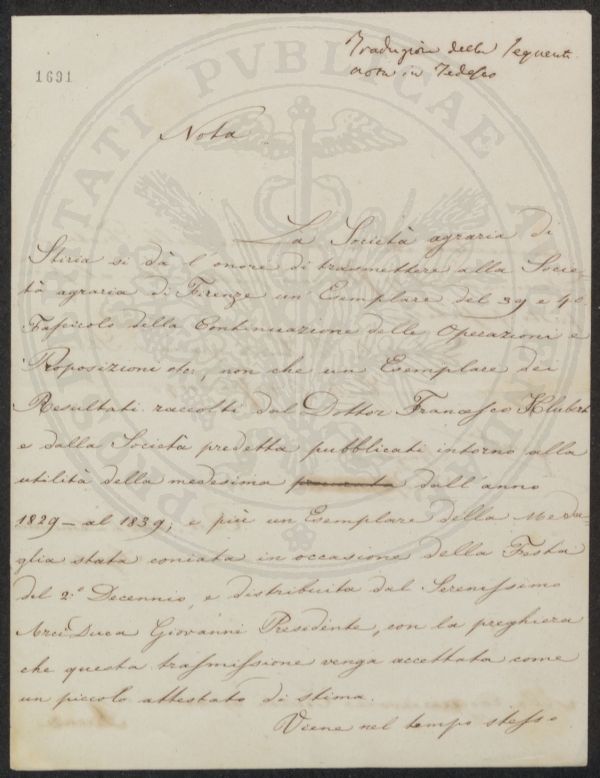 1691
Traduzione della seguente
nota in Tedesco
Nota
La Società agraria di
Stiria si dà l'onore di trasmettere alla Socie-
tà agraria di Firenze un'Esemplare del 39 e 40
Fascicolo della Continuazione delle Operazioni e
Proposizioni, non che un Esemplare dei
Resultati raccolti dal Dottor Francesco
e dalla Società predetta pubblicati intorno alla
utilità della medesima dall'anno
1829 – al 1839; e più un Esemplare della Meda-
glia stata coniata in occasione della Festa
del 2.° Decennio, e distribuita dal Serenissimo
Arci Duca Giovanni Presidente, con la preghiera
che questa trasmissione venga accettata come
un piccolo attestato di stima.
Viene nel tempo stesso
PROSPERITATI PVBLICAE AVGENDAE